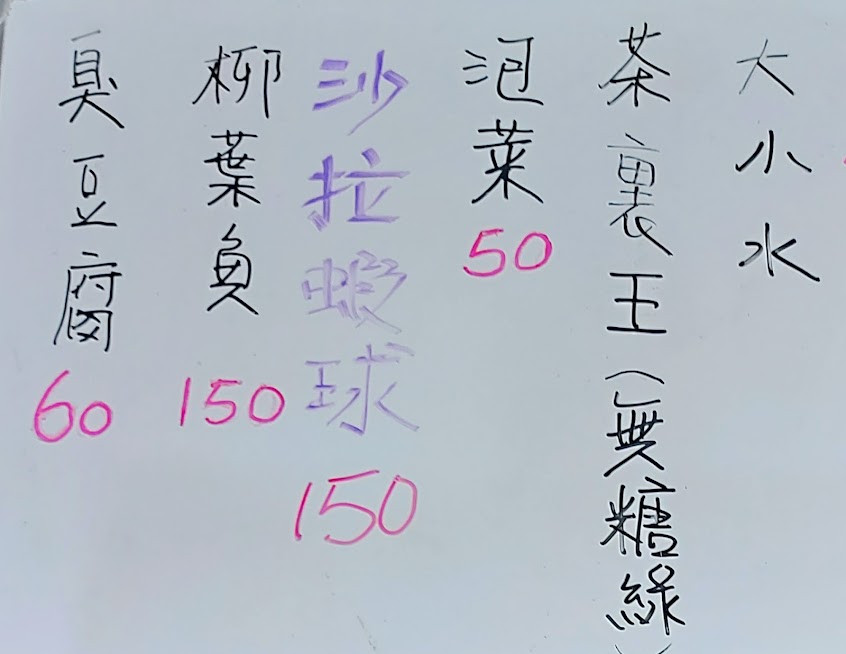 大小水
茶裏王(無糖綠)
泡菜50
沙拉蝦球150
柳葉魚150
臭豆腐60